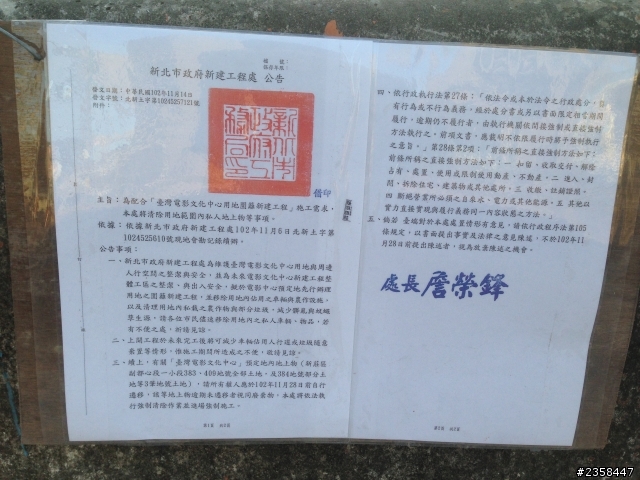 檔　號：
保存年限：
新北市政府新建工程處 公告
發文日期：中華民國102年11月14日
發文字號：北新土字第10245257121號
附件：
借印
主旨：為配合「臺灣電影文化中心用地圍籬新建工程」施工需求，
本處將清除用地範圍內私人地上物等事項。
依據：依據新北市政府新建工程處102年11月6日北新土字第
1024525610號現地會勘記錄續辦。
公告事項：
一、新北市政府新建工程處為維護臺灣電影文化中心用地與周邊
人行空間之整潔與安全，並為未來電影文化中心新建工程整
體工區之整潔、與出入安全，擬於電影中心預定地先行辦理
用地之圍籬新建工程，並移除用地內佔用之車輛與農作設施，
以及清理用地內私栽之農作物與部分垃圾，減少髒亂與蚊蠅
孳生源，請各位市民儘速移除用地內之私人車輛、物品，若
有不便之處，祈請見諒。
二、上開工程於未來完工後將可減少車輛佔用人行道或垃圾隨意
棄置等情形，惟施工期間所造成之不便，敬請見諒。
三、續上，有關「臺灣電影文化中心」預定地內地上物（新莊區
副都心段一小段383、409地號全部土地，及384地號部分土
地等3筆地號土地），請所有權人應於102年11月28日前自行
遷移，該等地上物逾期未遷移者視同廢棄物，本處將依法執
行強制清除作業並進場強制施工。
第1頁 共2頁
四、依行政執行法第27條：「依法令或本於法令之行政處分，負
有行為或不行為義務，經於處分書或另以書面限定相當期間
履行，逾期仍不履行者，由執行機關依間接強制或直接強制
方法執行之。前項文書，應載明不依限履行時將予強制執行
之意旨。」第28條第2項：「前條所稱之直接強制方法如下：
前條所稱之直接強制方法如下：一 扣留、收取交付、解除
占有、處置、使用或限制使用動產、不動產。二 進入、封
閉、拆除住宅、建築物或其他處所。三 收繳、註銷證照。
四 斷絕營業所必須之自來水、電力或其他能源。五 其他以
實力直接實現與履行義務同一內容狀態之方法。」
五、倘若 臺端對於本處處置情形有意見，請依行政程序法第105
條規定，以書面提出事實及法律之意見陳述，不於102年11
月28日前提出陳述者，視為放棄陳述之機會。
處長 詹榮鋒
第2頁 共2頁
#2358447